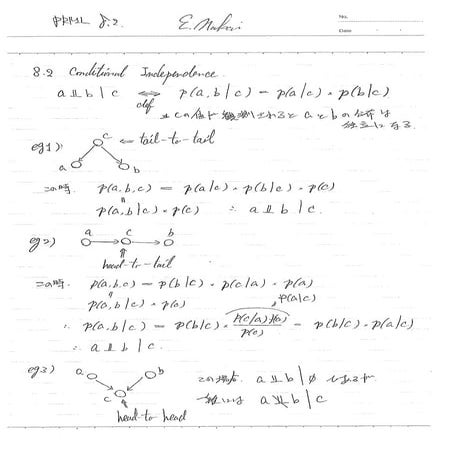 PRML 8.2.
No.
Date
8.2 Conditional Independence.
a ⫫ b | c ⇔ p(a,b|c) = p(a|c)・p(b|c)
def
※ cの値が観測されると aとbの分布は
独立になる
eg1)
c ← tail-to-tail
a b
この時 p(a,b,c) = p(a|c)・p(b|c)・p(c)
p(a,b|c)・p(c) ∴ a ⫫ b | c.
eg2)
a c b
head-to-tail
この時. p(a,b,c) = p(b|c)・p(c|a)・p(a)
p(a,b|c)・p(c) p(a|c)
∴ p(a,b|c) = p(b|c)・p(c|a)p(a)/p(c) = p(b|c)・p(a|c)
∴ a ⫫ b | c.
eg3)
a b
c
head-to-head
この場合. a ⫫ b | ∅ であるが
一般には a ⫫̸ b | c